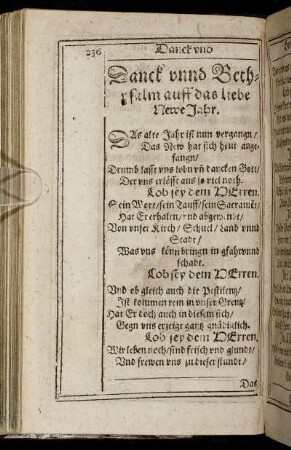 236
Danck vnd
Danck vnnd Beth-
psalm auff das liebe
Newe Jahr.
DAs alte Jahr ist nun vergangn/
Das New hat sich heut ange-
fangn/
Drumb lasst vns lobn vñ dancken Gott/
Der vns erlöst aus so viel noch.
Lob sey dem HErren.
Sein Wort/ sein Tauff/ sein Sacramēt/
Hat Er erhaltn/ vnd abgewent/
Von vnser Kirch/ Schuel/ Land vnnd
Stadt/
Was vns köñ bringn in gfahr vnnd
schadt.
Lob sey dem HErren.
Vnd ob gleich auch die Pestilentz/
Ist kommen rein in vnser Grentz/
Hat Er doch auch in diesem sich/
Gegn vns erzeigt gantz gnädiglich.
Lob sey dem HErren.
Wir leben noch/ sind frisch vnd gsundt/
Vnd frewen vns zu dieser stundt/
Das